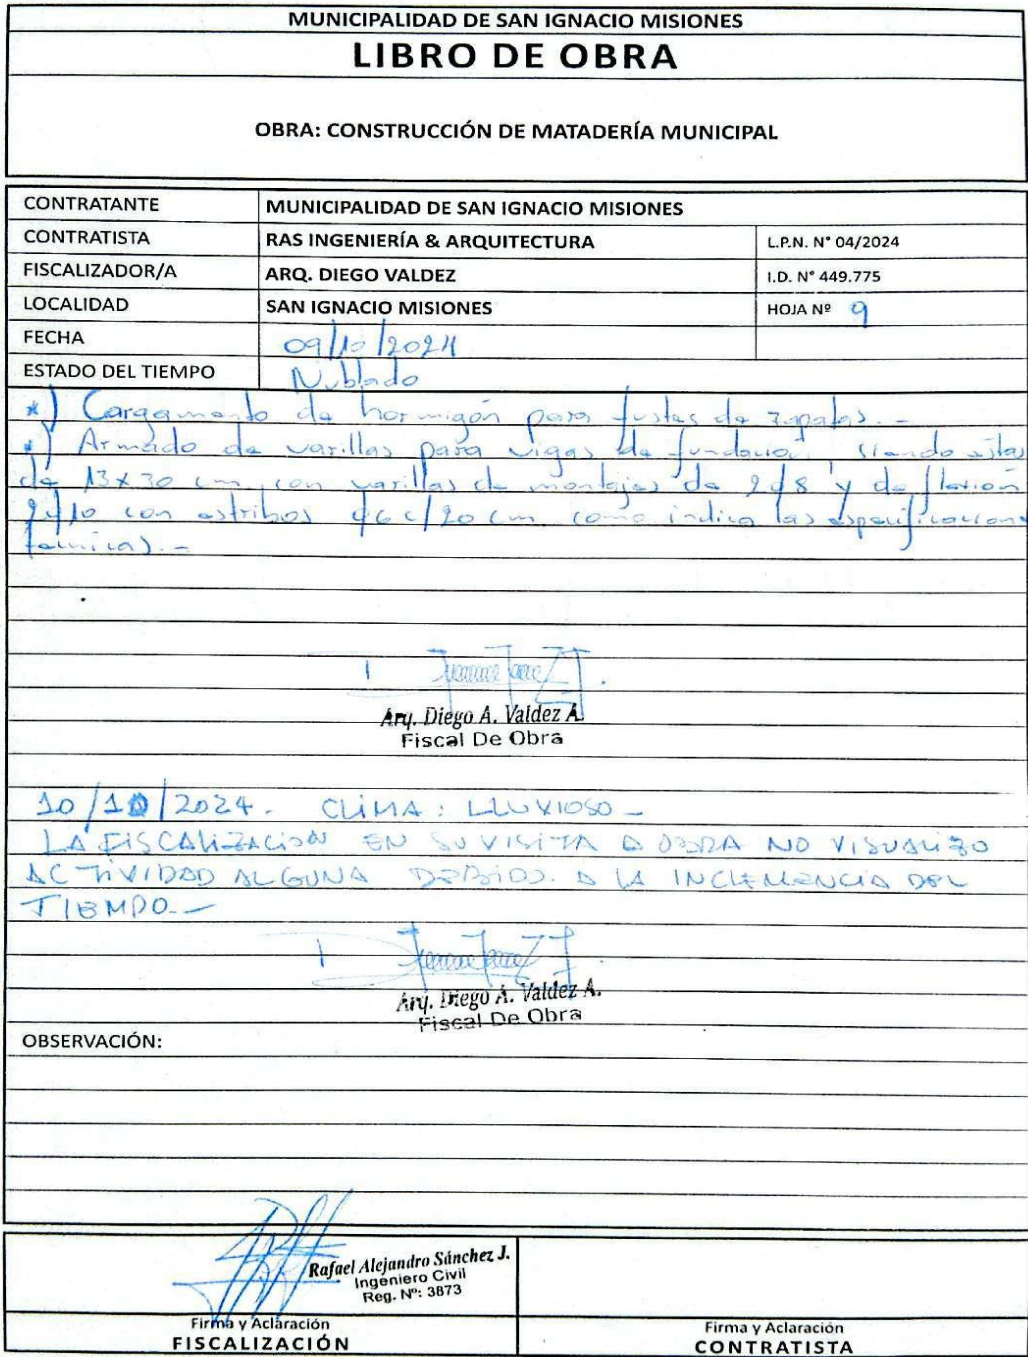 MUNICIPALIDAD DE SAN IGNACIO MISIONES
LIBRO DE OBRA
OBRA: CONSTRUCCIÓN DE MATADERÍA MUNICIPAL
CONTRATANTE MUNICIPALIDAD DE SAN IGNACIO MISIONES
CONTRATISTA RAS INGENIERÍA & ARQUITECTURA L.P.N. N° 04/2024
FISCALIZADOR/A ARQ. DIEGO VALDEZ I.D. N° 449.775
LOCALIDAD SAN IGNACIO MISIONES HOJA Nº 9
FECHA 09/10/2024
ESTADO DEL TIEMPO Nublado
*) Cargamento de hormigón para fustes de zapatas. -
*) Armado de varillas para vigas de fundacion, siendo estas
de 13x30 cm, con varillas de montajes de 2φ8 y de flexion
2φ10 con estribos φ6 c/20 cm. como indica las especificacion
tecnicas. -
Arq. Diego A. Valdez A.
Fiscal De Obra
10/10/2024. CLIMA: LLUVIOSO -
LA FISCALIZACION EN SU VISITA A OBRA NO VISUALIZO
ACTIVIDAD ALGUNA DEBIDO. A LA INCLEMENCIA DEL
TIEMPO. -
Arq. Diego A. Valdez A.
Fiscal De Obra
OBSERVACIÓN:
Rafael Alejandro Sánchez J.
Ingeniero Civil
Reg. Nº: 3873
Firma y Aclaración
FISCALIZACIÓN
Firma y Aclaración
CONTRATISTA